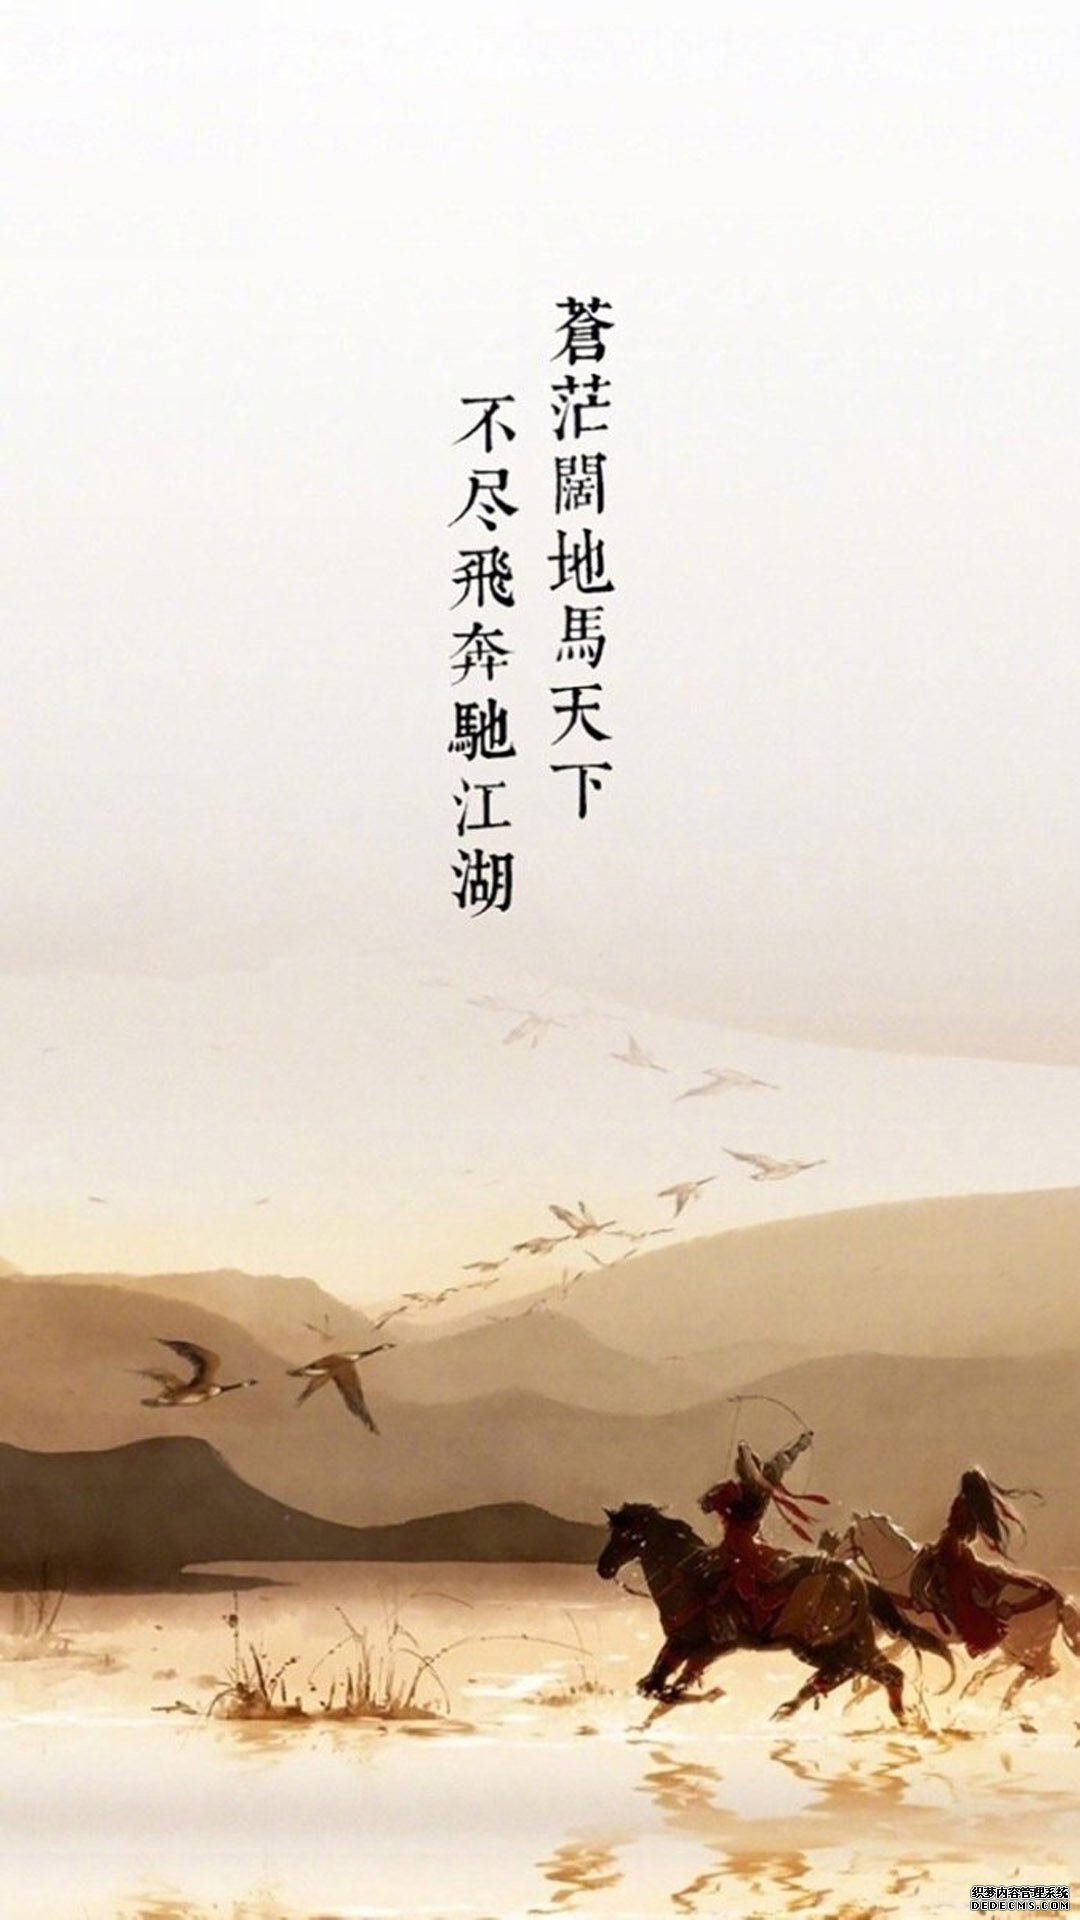 蒼茫闊地馬天下
不尽飛奔馳江湖
织梦内容管理系统
DEDECMS.COM